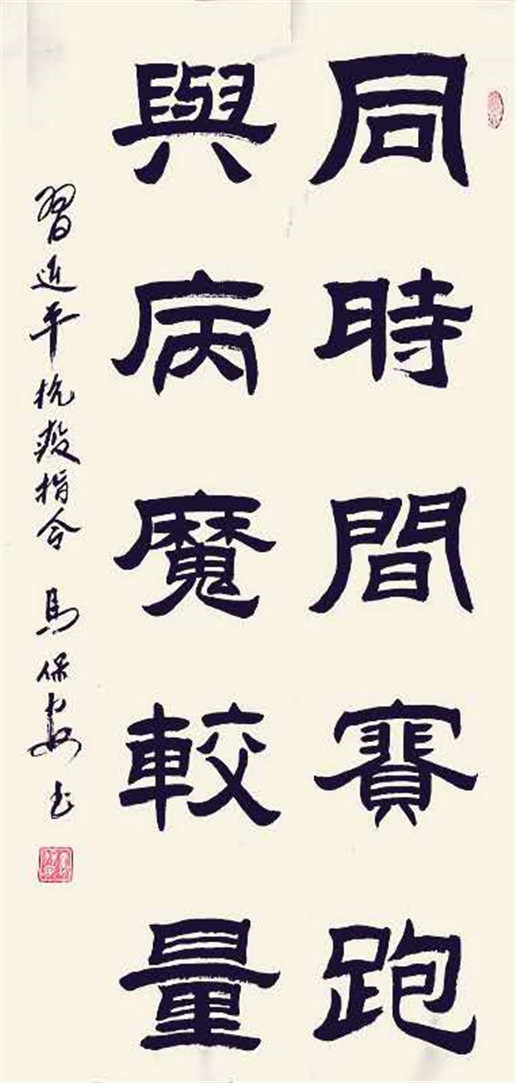 同時間賽跑
與病魔較量
習近平抗疫指令 馬保安书